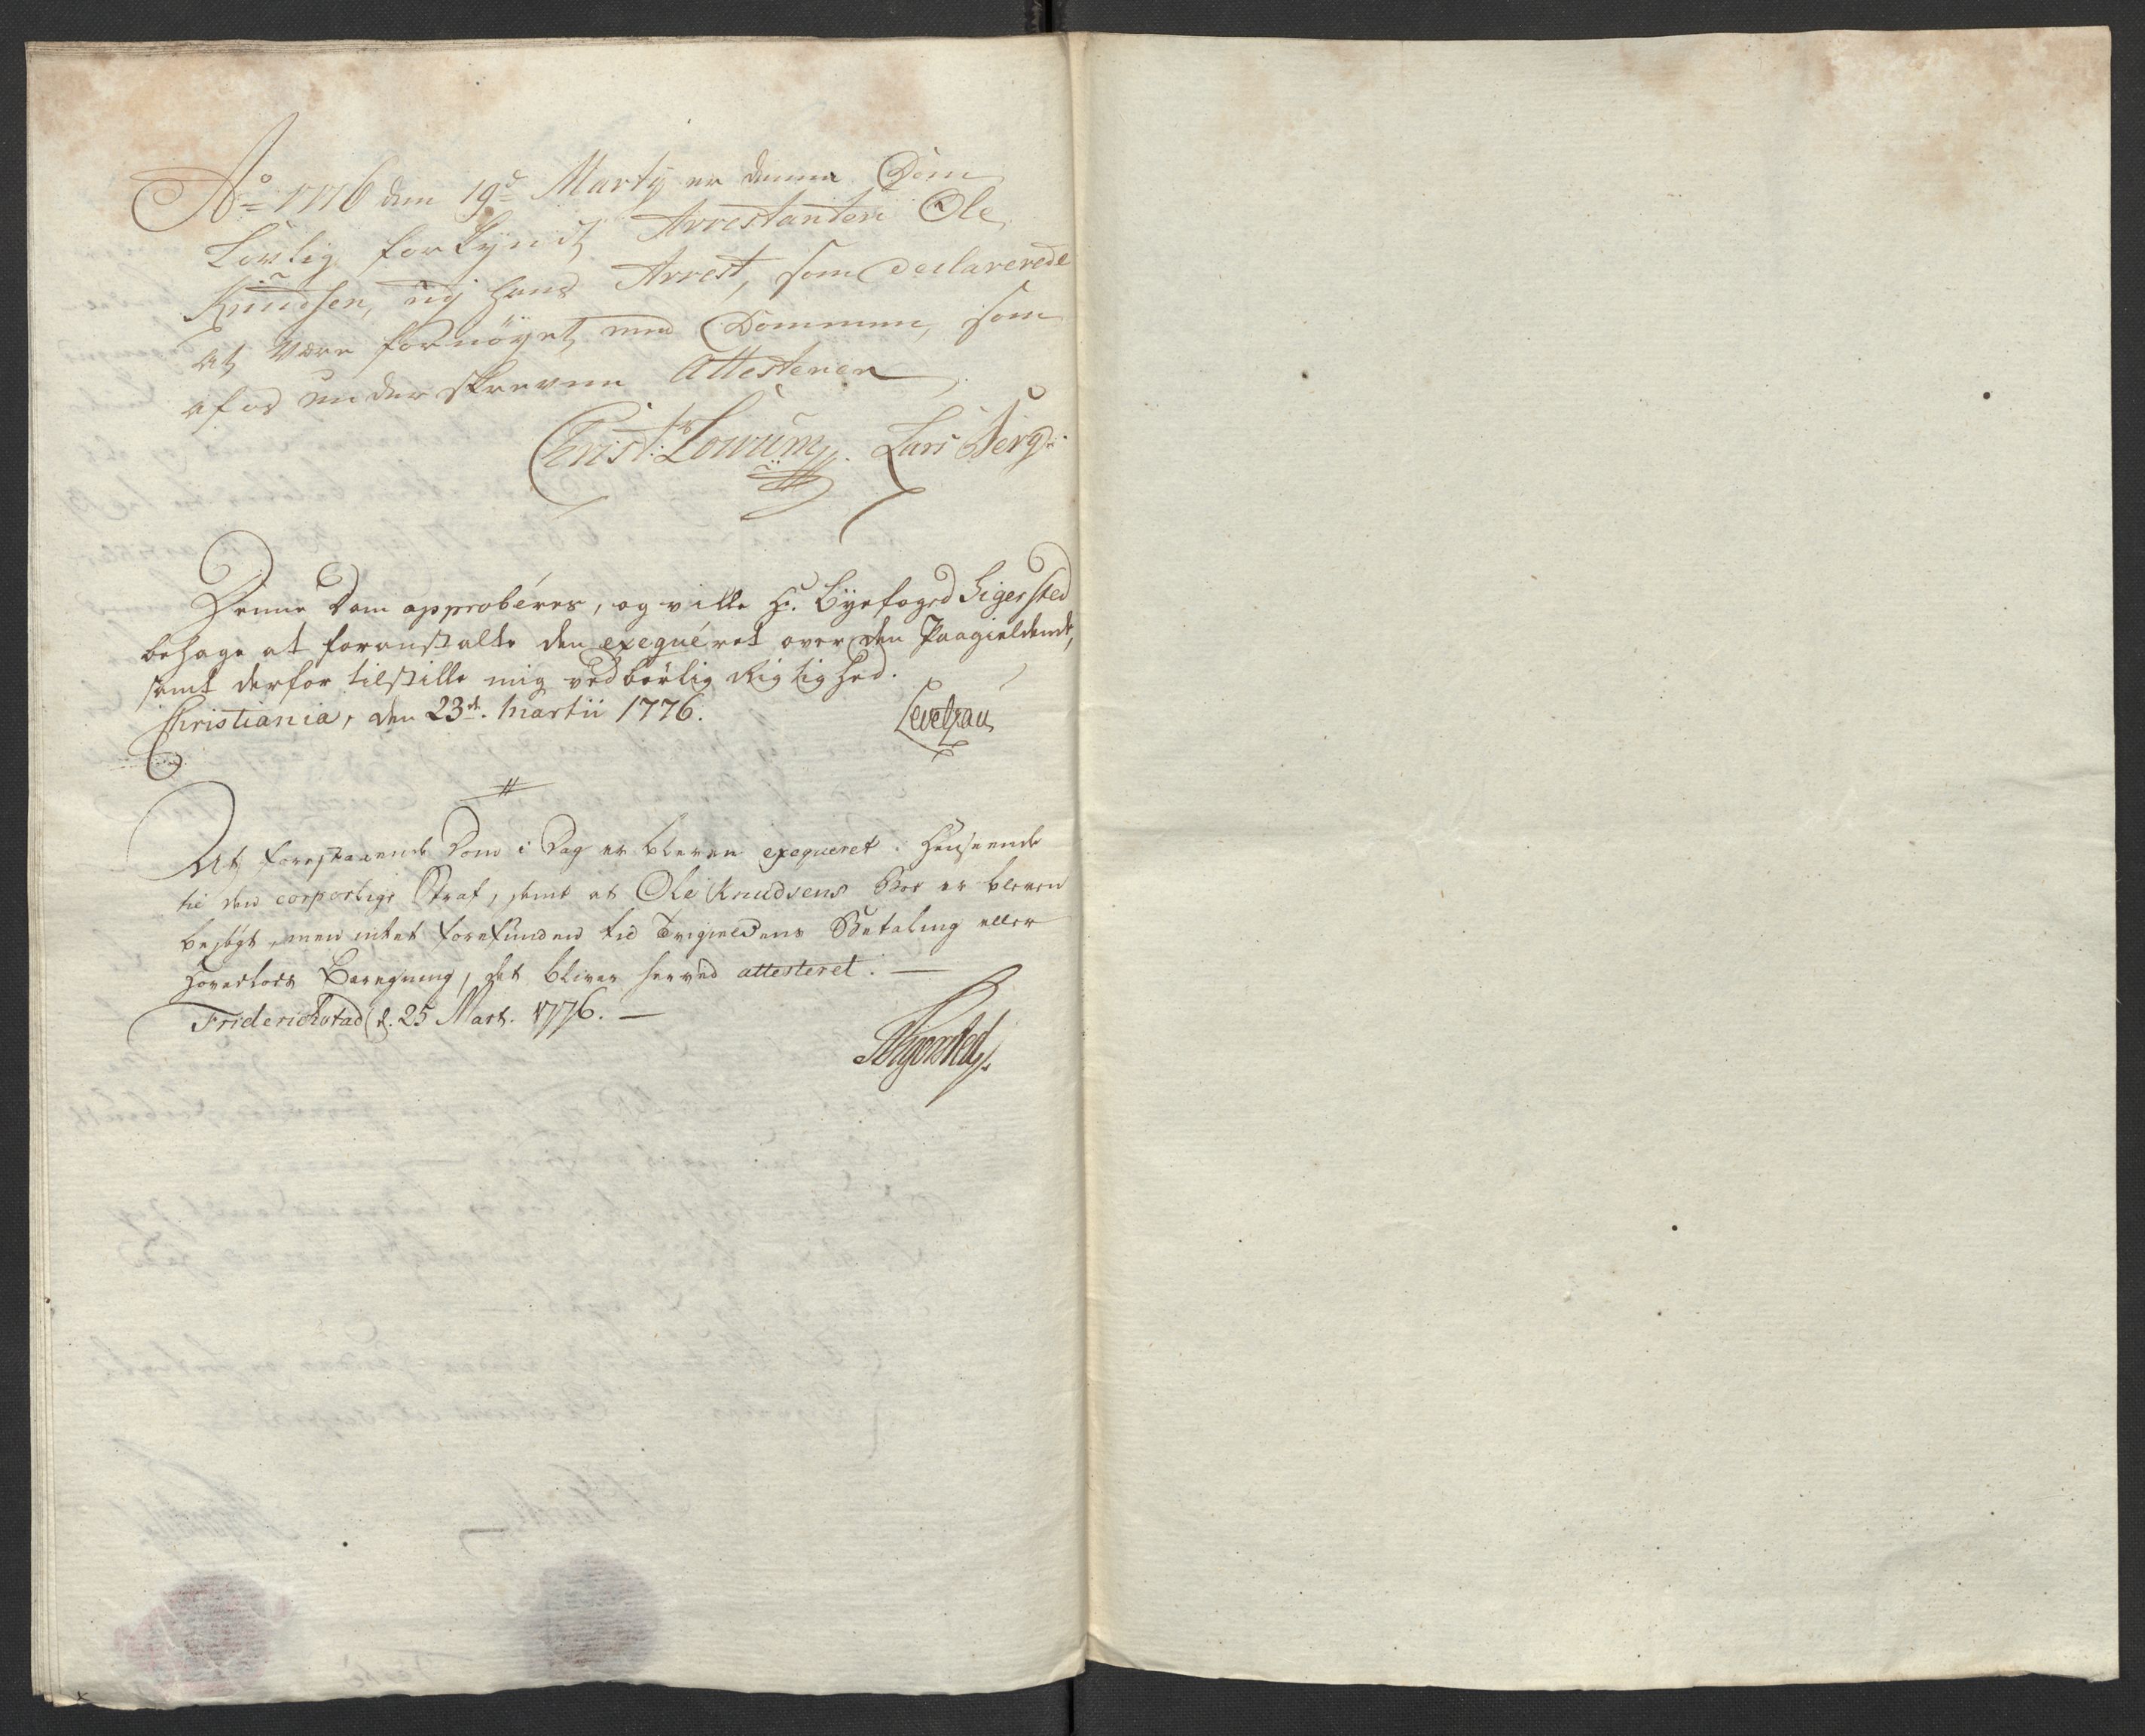 Ao 1776 den 19de Martÿ er denne Dom
Lovlig forkÿndt Arrestanten Ole
Knudsen, udj hans Arrest, som declarerede
at være fornöÿet med Dommen, som
af os underskrevne Attesterer
Christ: Lowum. Lars Berg:
Denne Dom approbéres, og ville Hr. Byefoged Sigersted
behage at foranstalte den exequéret over den Paagieldende,
samt derfor tilstille mig vedbørlig Rigtighed.
Christiania, den 23de. Martii 1776.
Levetzau
At forestaaende Dom i Dag er bleven exequeret i Henseende
til den corporlige Straf, samt at Ole Knudsens Boe er bleven
besögt, men intet forefunden til Betaling eller
Beregning, det bliver herved attesteret.
Friderichstad d. 25 Mart. 1776.
Sigersted